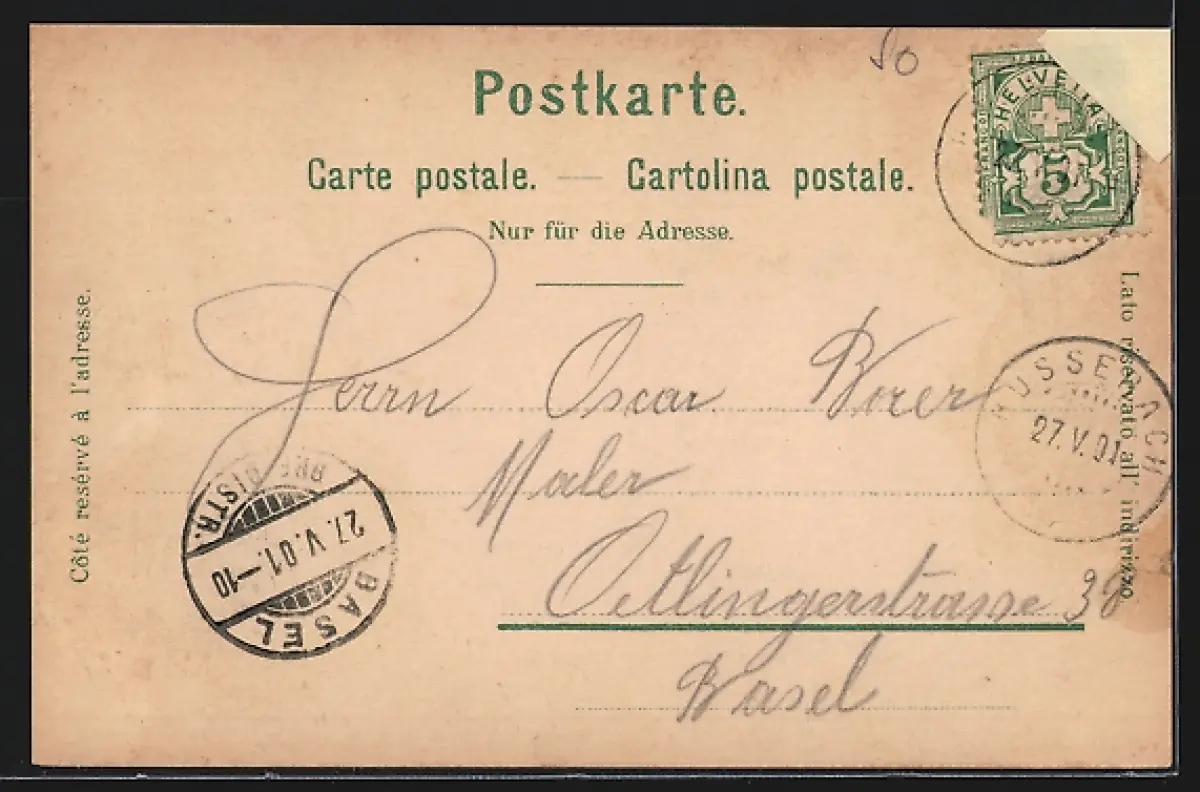 50
Postkarte.
Carte postale. — Cartolina postale.
Nur für die Adresse.
HELVETIA
5
Côté resérvé à l'adresse.
Lato riservato all' indirizzo.
Herrn Oscar Borer
Maler
Oetlingerstrasse 38
Basel
BÜSSERACH
27.V.01
BRF. DISTR.
27.V.01.—10
BASEL